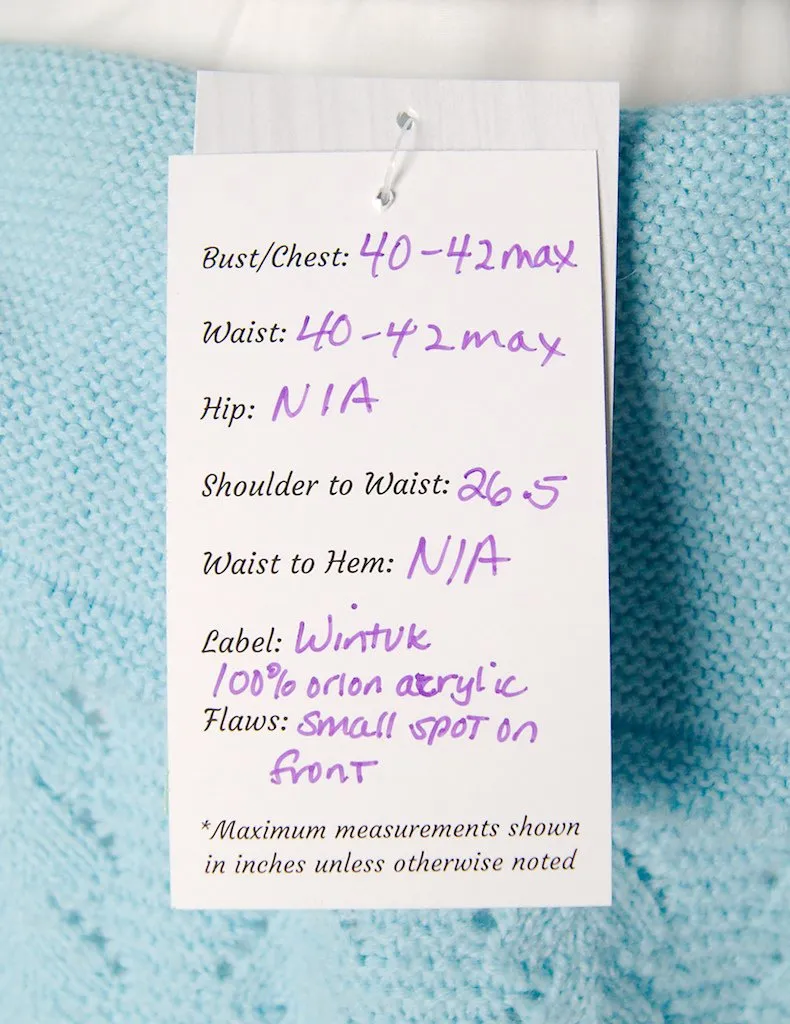 Bust/Chest: 40-42 max
Waist: 40-42 max
Hip: N/A
Shoulder to Waist: 26.5
Waist to Hem: N/A
Label: Wintuk
100% orlon acrylic
Flaws: small spot on
front
*Maximum measurements shown
in inches unless otherwise noted